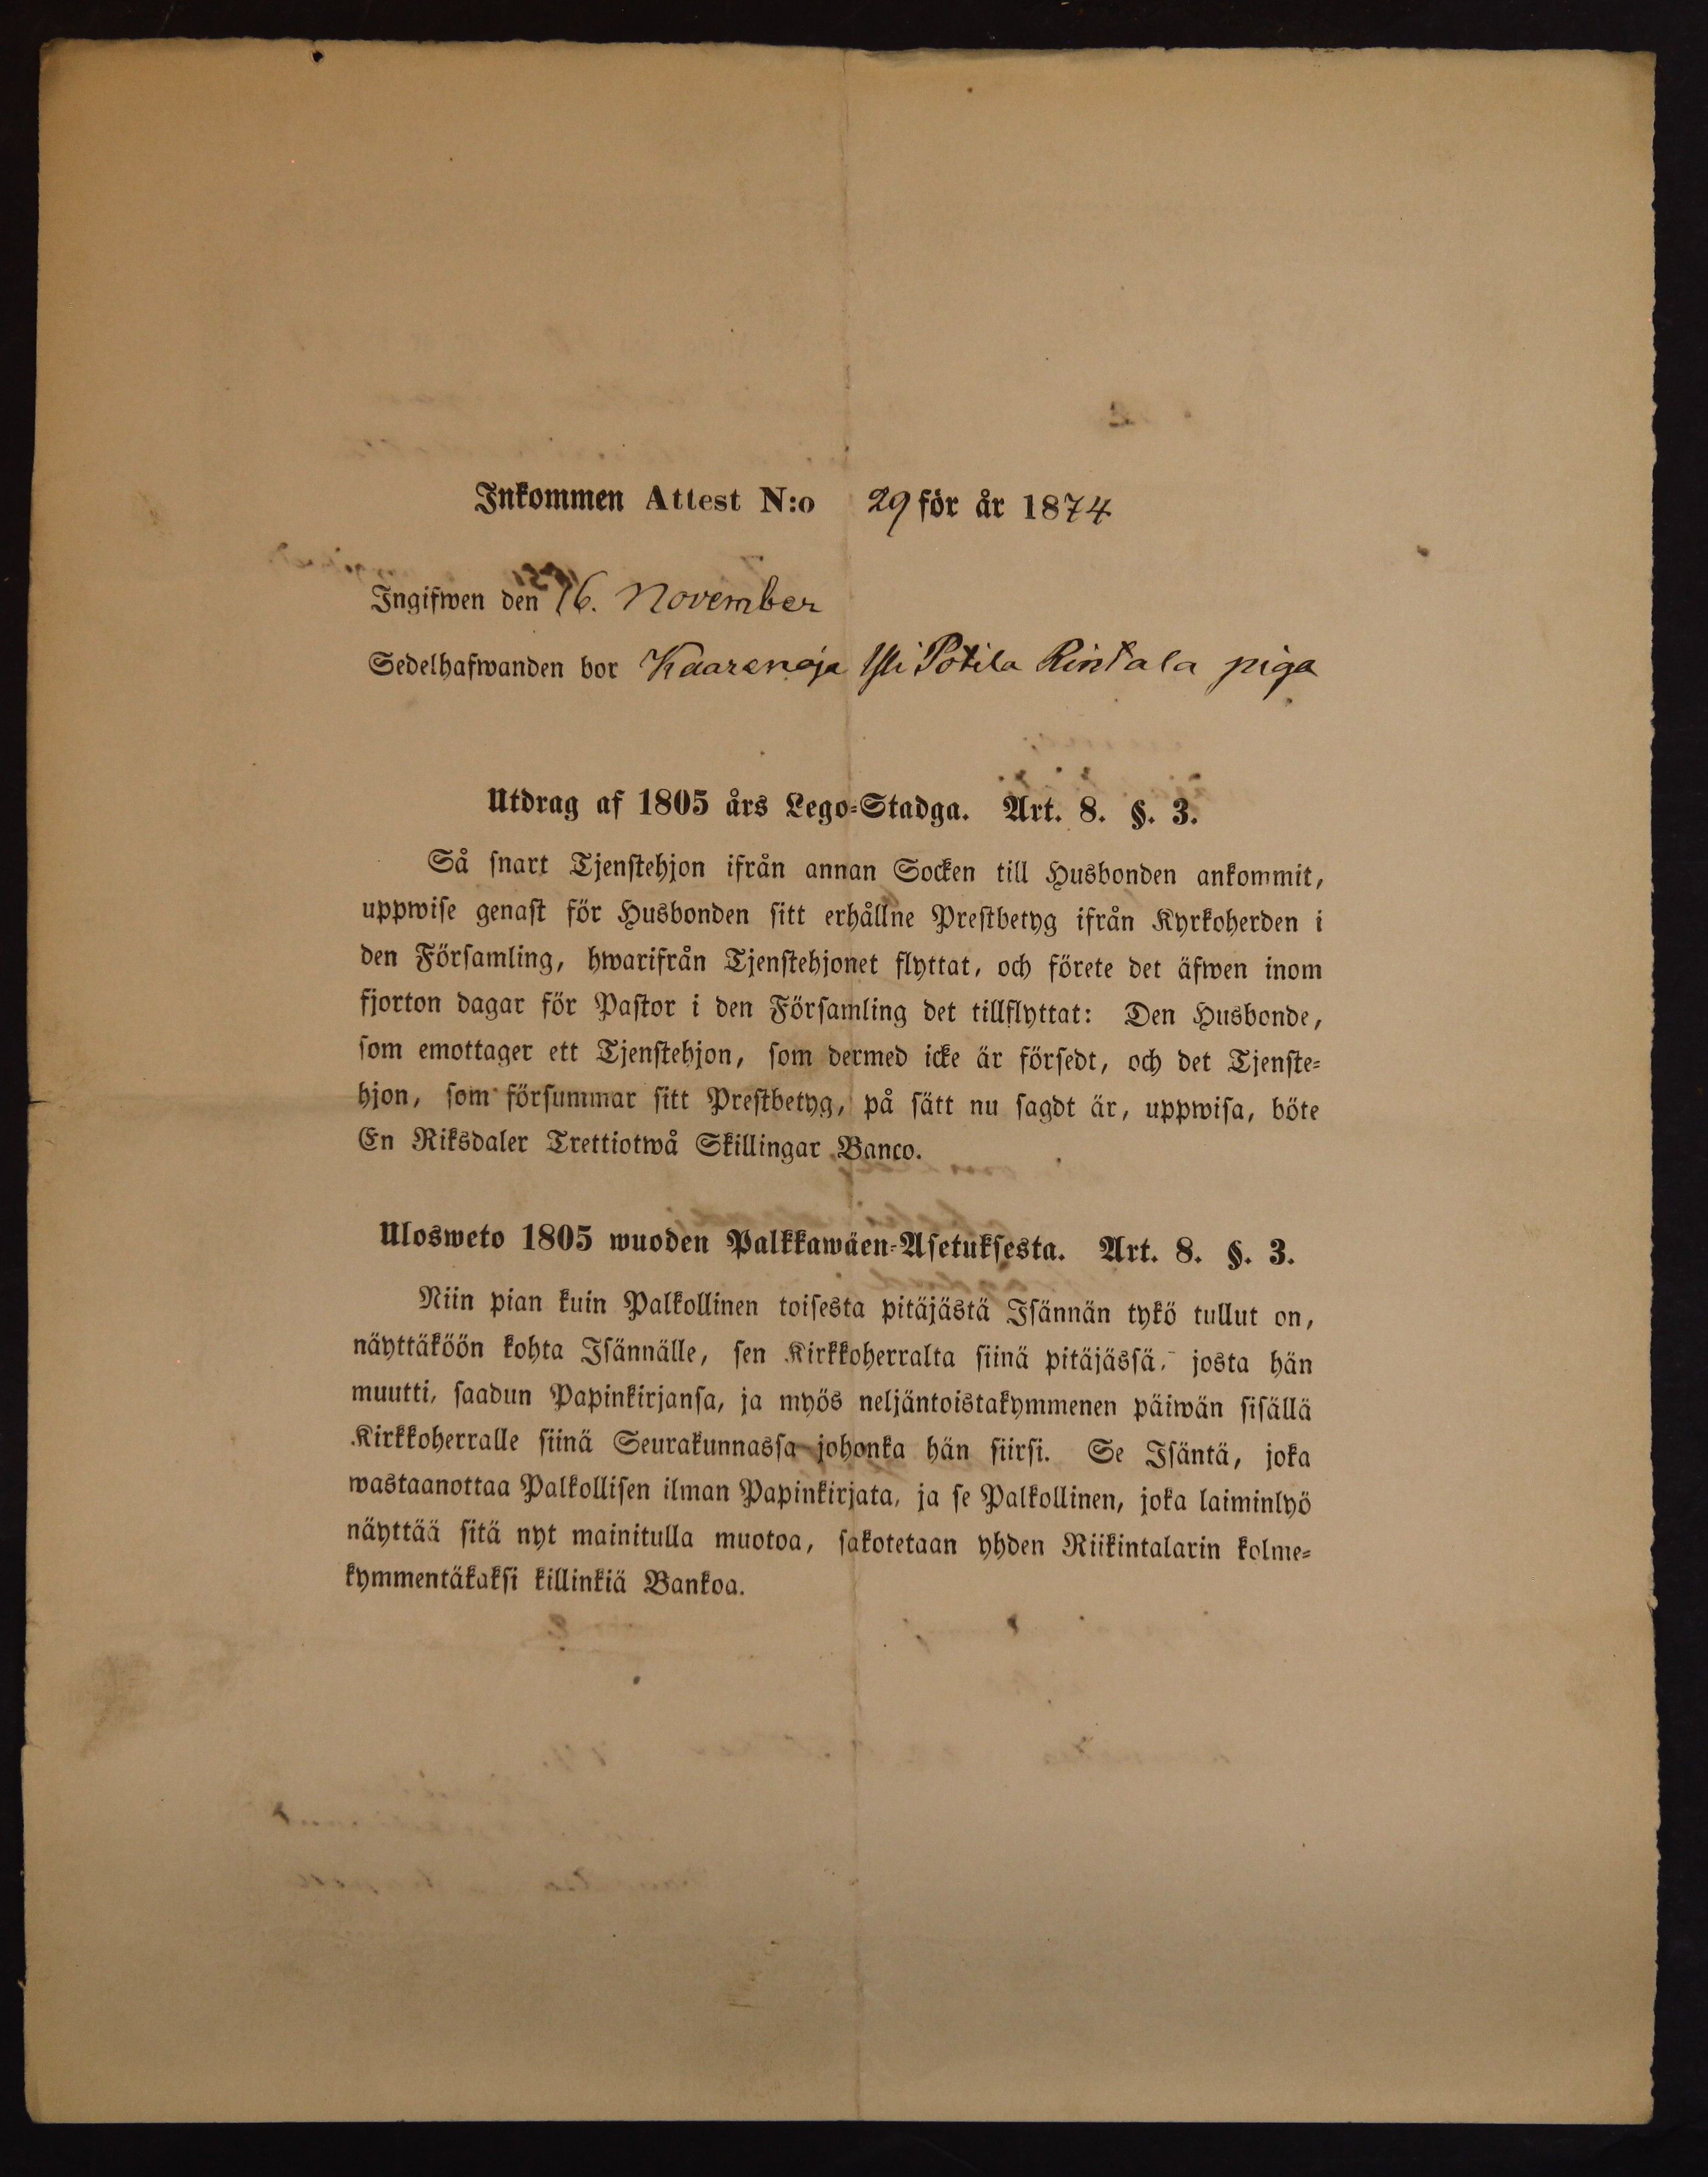 Inkommen Attest N:o 29 för år 1874
Ingifwen den 16. November
Sedelhafwanden bor Kaarenoja Potila Rintala piga
Utdrag af 1805 års Lego-Stadga. Art. 8. §. 3.
Så snart Tjenstehjon ifrån annan Socken till Husbonden ankommit,
uppwise genast för Husbonden sitt erhållne Prestbetyg ifrån Kyrkoherden i
den Församling, hwarifrån Tjenstehjonet flyttat, och förete det äfwen inom
fjorton dagar för Pastor i den Församling det tillflyttat: Den Husbonde,
som emottager ett Tjenstehjon, som dermed icke är försedt, och det Tjenste-
hjon, som försummar sitt Prestbetyg, på sätt nu sagdt är, uppwisa, böte
En Riksdaler Trettiotwå Skillingar Banco.
Ulosweto 1805 wuoden Palkkawäen-Asetuksesta. Art. 8. §. 3.
Niin pian kuin Palkollinen toisesta pitäjästä Isännän tykö tullut on,
näyttäköön kohta Isännälle, sen Kirkkoherralta siinä pitäjässä, josta hän
muutti, saadun Papinkirjansa, ja myös neljäntoistakymmenen päiwän sisällä
Kirkkoherralle siinä Seurakunnassa johonka hän siirsi. Se Isäntä, joka
wastaanottaa Palkollisen ilman Papinkirjata, ja se Palkollinen, joka laiminlyö
näyttää sitä nyt mainitulla muotoa, sakotetaan yhden Riikintalarin kolme-
kymmentäkaksi killinkiä Bankoa.